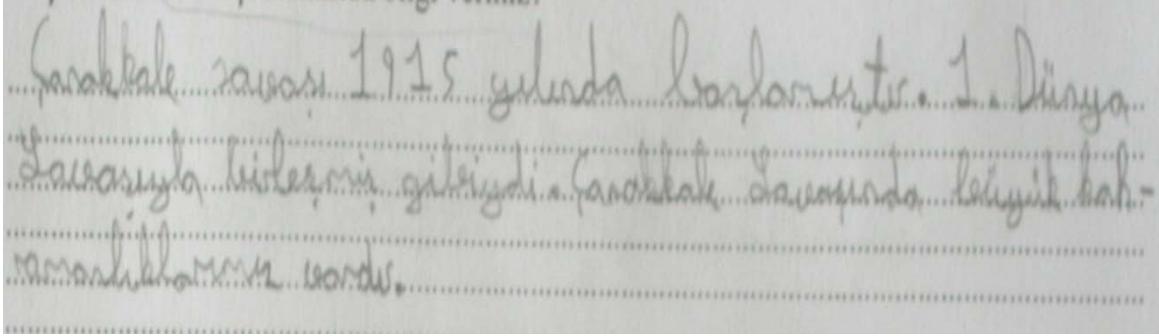 Çanakkale savaşı 1915 yılında başlamıştır. 1. Dünya
Savaşıyla birleşmiş gibiydi. Çanakkale Savaşında büyük kah-
ramanlıklarımız vardı.